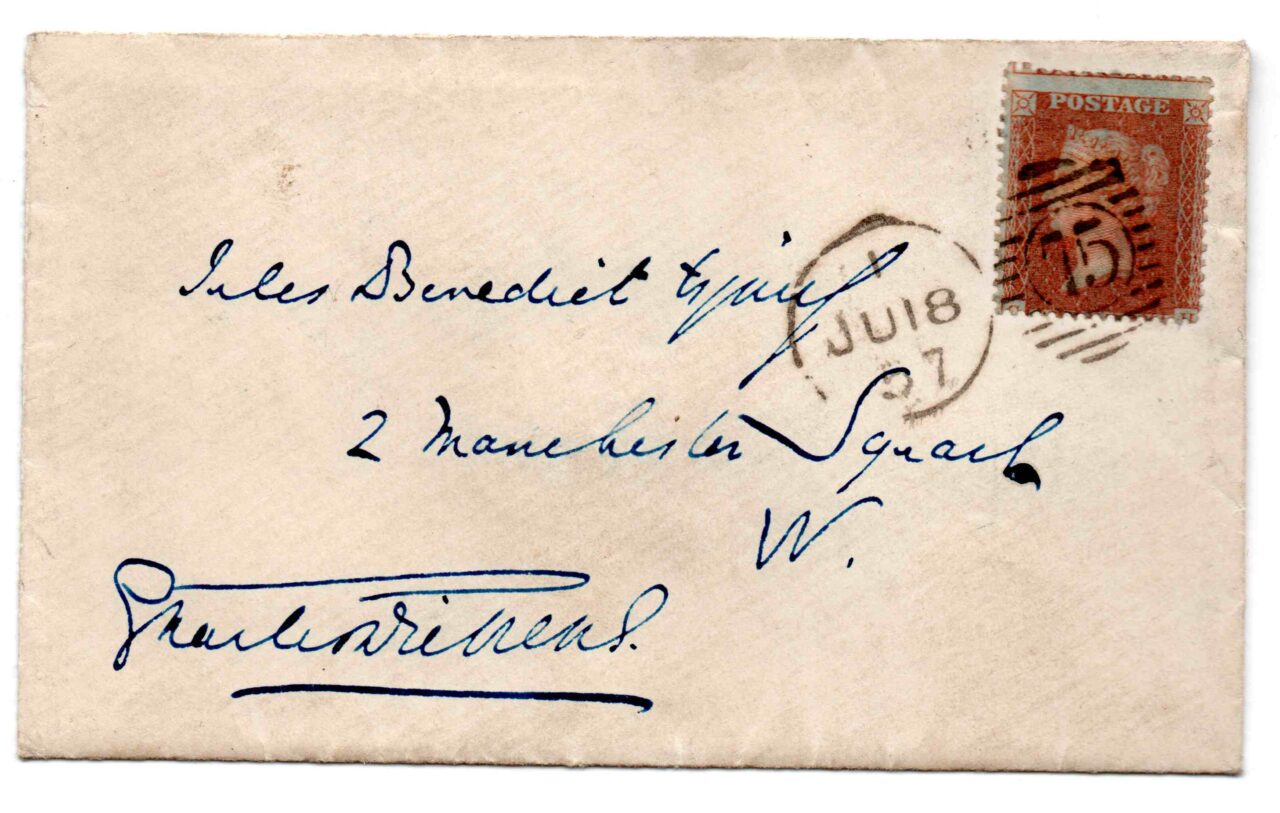 POSTAGE
75
JU 18
57
Jules Benedict Esquire
2 Manchester Square
W.
Charles Dickens.